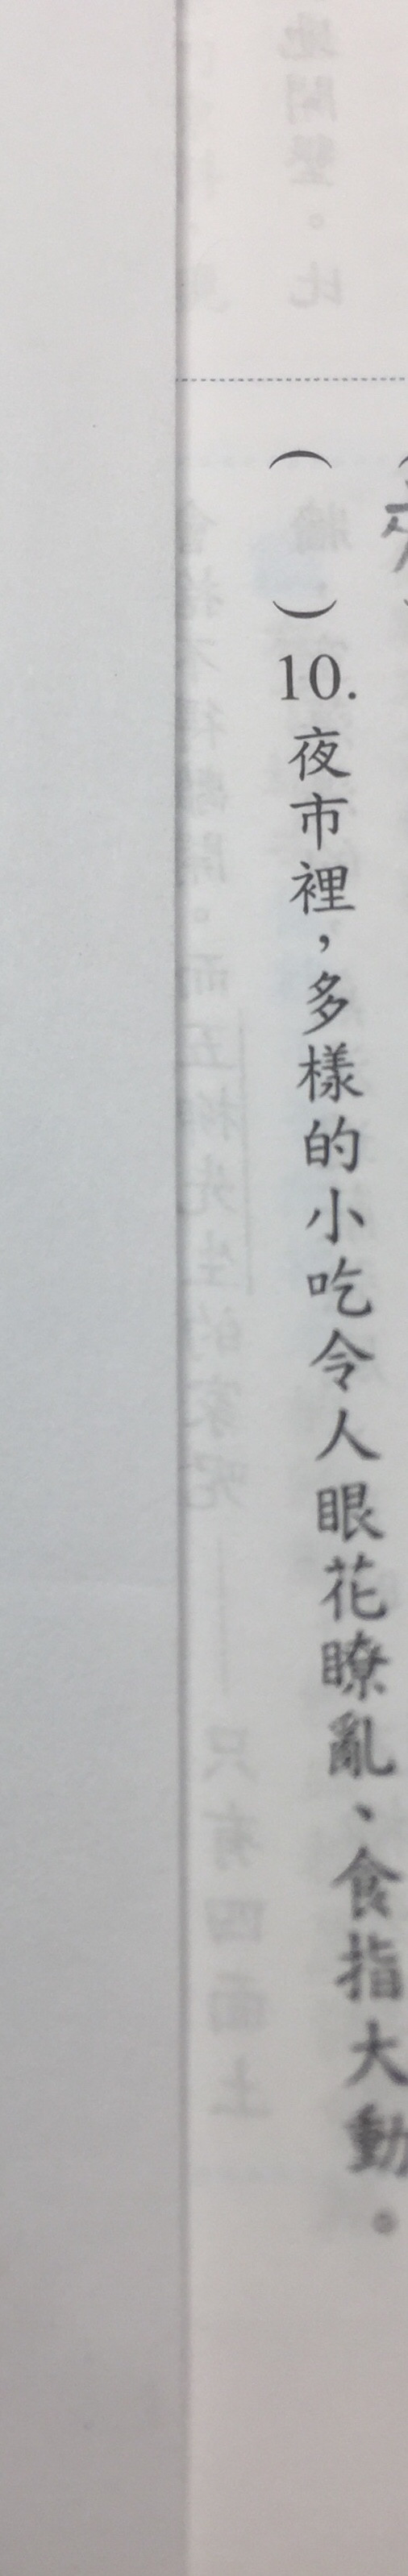 (　)10.夜市裡，多樣的小吃令人眼花瞭亂、食指大動。